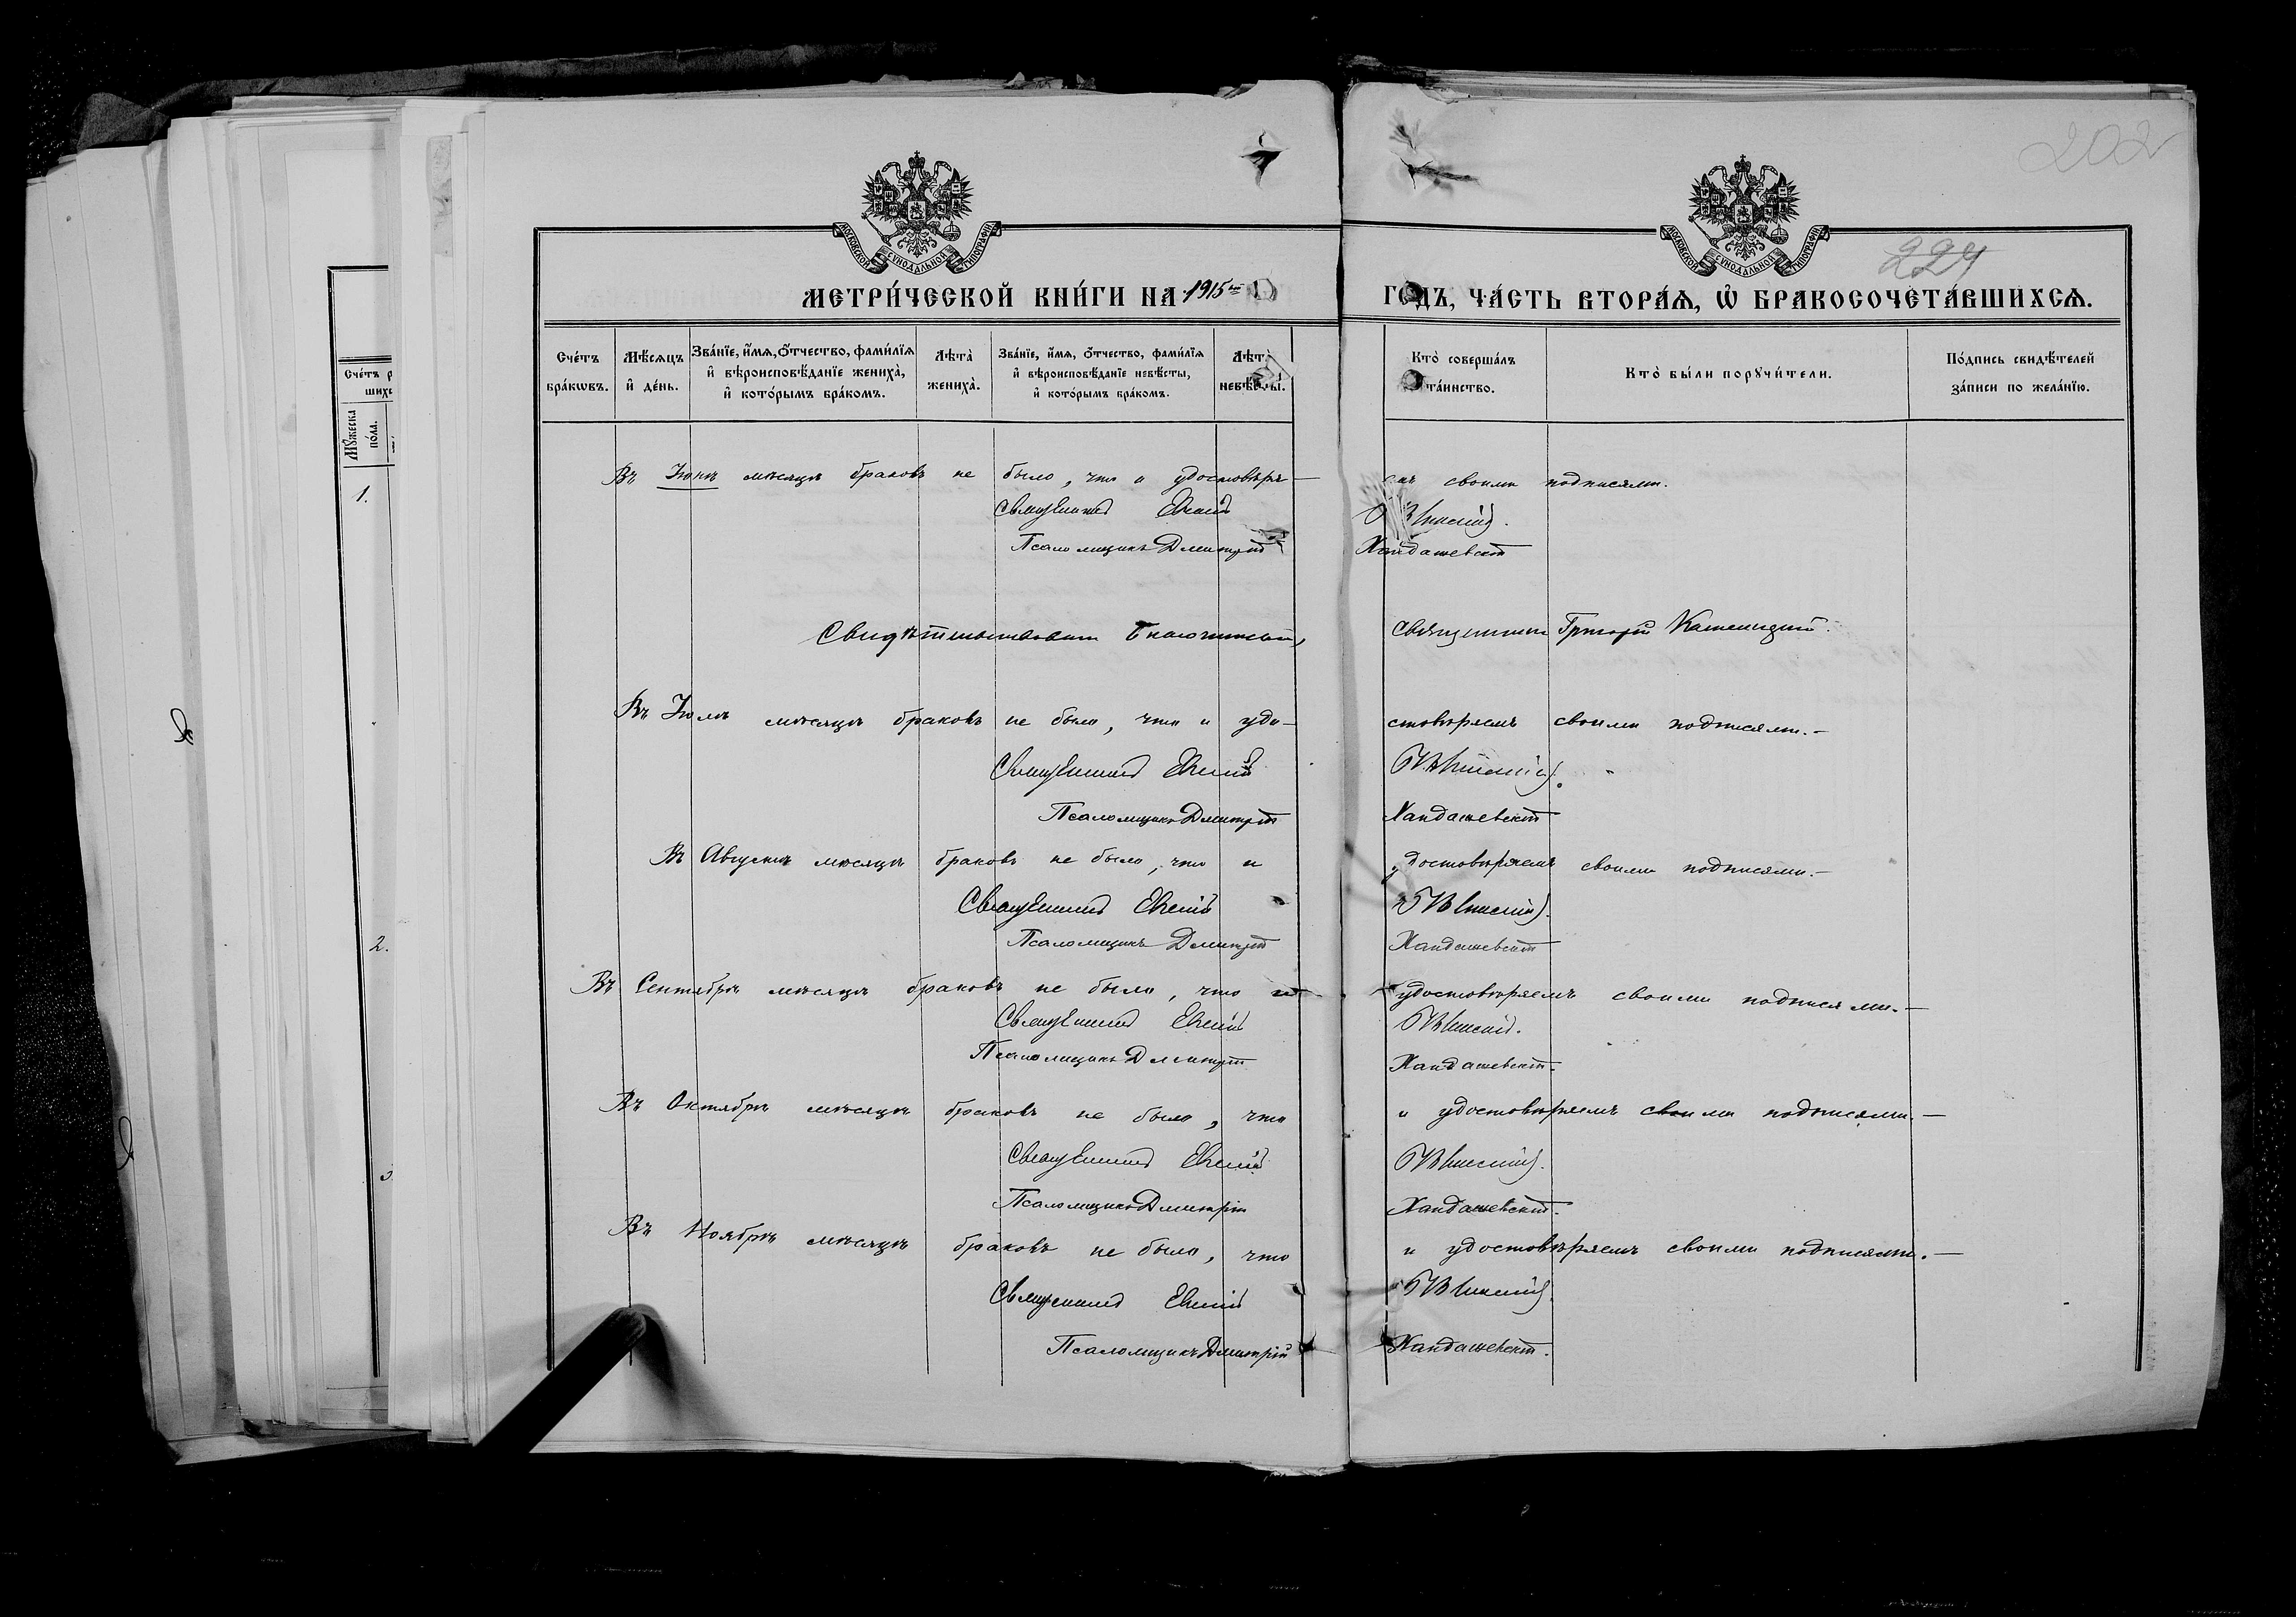 202
224
МОСКОВСКОЙ СУНОДАЛЬНОЙ ТИПОГРАФІИ
МОСКОВСКОЙ СУНОДАЛЬНОЙ ТИПОГРАФІИ
МЕТРИ́ЧЕСКОЙ КНИ́ГИ НА 1915 ГОДЪ, ЧА́СТЬ ВТОРА́Ѧ, Ѽ БРАКОСОЧЕТА́ВШИХСѦ.
Сче́тъ бра́кωвъ.
Мѣ́сѧцъ и҆ де́нь.
Зва́нїе, и҆́мѧ, ѻ҆́тчество, фами́лїѧ и҆ вѣроисповѣ́данїе жениха̀, и҆ кото́рымъ бра́комъ.
Лѣта̀ жениха̀.
Зва́нїе, и҆́мѧ, ѻ҆́тчество, фами́лїѧ и҆ вѣроисповѣ́данїе невѣ́сты, и҆ кото́рымъ бра́комъ.
Лѣта̀ невѣ́сты.
Кто̀ соверша́лъ та́инство.
Кто̀ бы́ли порꙋчи́тели.
По́дпись свидѣ́телей за́писи по жела́нїю.
Сче́тъ р
шихс
Мꙋ́жеска по́ла.
1.
2.
3.
Въ Іюнѣ мѣсяцѣ браковъ не было, что и удостовѣря- емъ своими подписями.
Священникъ
Псаломщикъ Дмитрій Хандажевскій
Священникъ Григорій
Въ Іюлѣ мѣсяцѣ браковъ не было, что и удо- стовѣряемъ своими подписями.-
Священникъ
Псаломщикъ Дмитрій Хандажевскій
Въ Августѣ мѣсяцѣ браковъ не было, что и удостовѣряемъ своими подписями.-
Священникъ
Псаломщикъ Дмитрій Хандажевскій
Въ Сентябрѣ мѣсяцѣ браковъ не было, что и удостовѣряемъ своими подписями.-
Священникъ
Псаломщикъ Дмитрій Хандажевскій.
Въ Октябрѣ мѣсяцѣ браковъ не было, что и удостовѣряемъ своими подписями.-
Священникъ
Псаломщикъ Дмитрій Хандажевскій.
Въ Ноябрѣ мѣсяцѣ браковъ не было, что и удостовѣряемъ своими подписями.-
Священникъ
Псаломщикъ Дмитрій Хандажевскій.